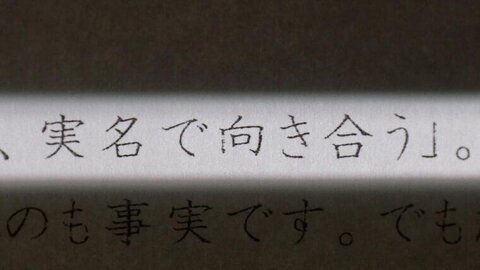 、実名で向き合う」。
のも事実です。でも